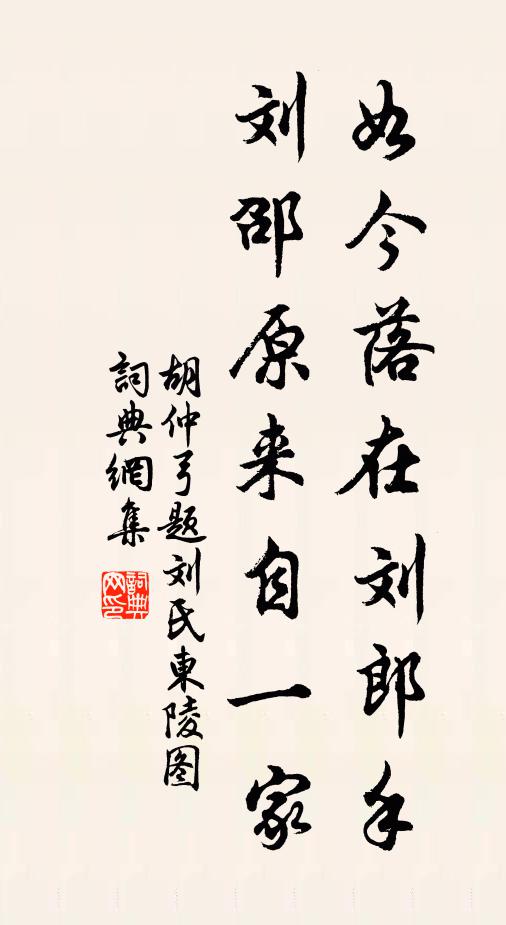 如今落在刘郎手
刘邵原来自一家
胡仲弓题刘氏東陵图
詞典網集
詞典网印